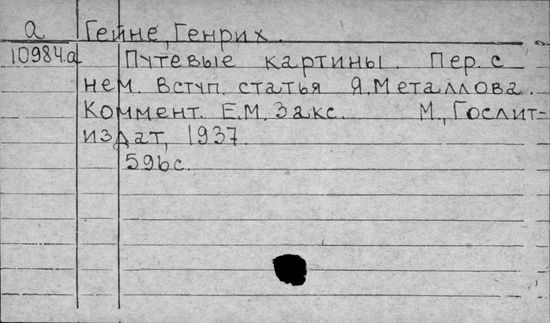 а Гейне, Генрих.
10984.а Путевые картины. Пер. с
нем. Вступ. статья Я. Металлова.
Коммент. Е.М. Закс. М., Гослит-
издат, 1937.
596с.